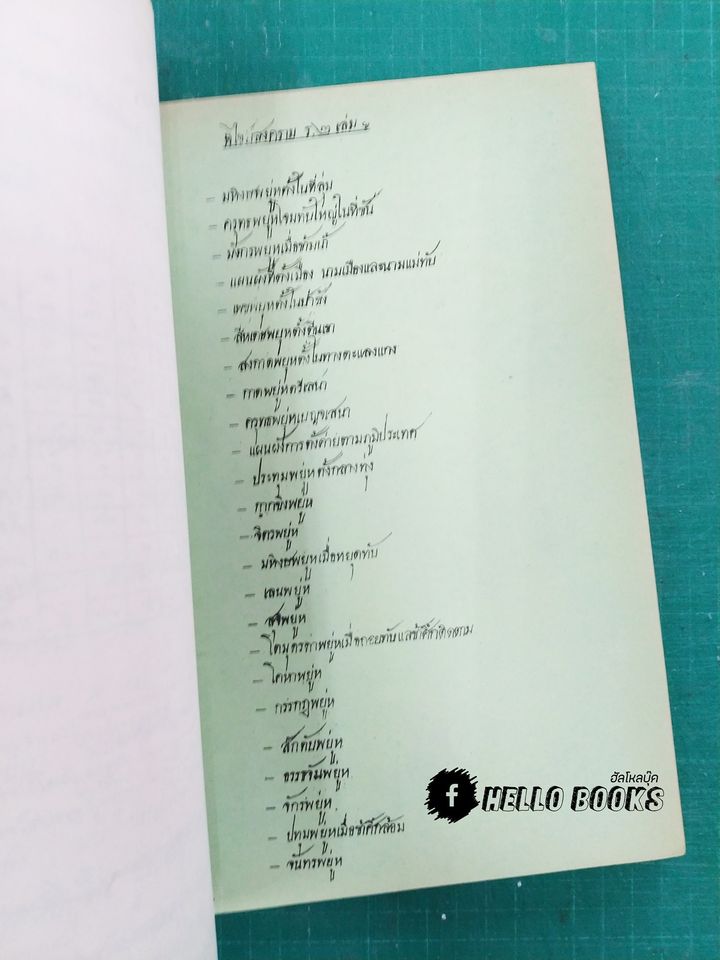 พิไชยสงคราม ร.๒ เล่ม ๑
– มหิงษพยู่หตั้งในที่ลุ่ม
– ครุฑธพยู่หโจมทัพใหญ่ในที่ขัน
– มังกรพยุหเมื่อข้ามน้ำ
– แผนผังที่ตั้งเมือง นามเมืองและนามแม่ทัพ
– เพชพยุหตั้งในป่าชัง
– สีห พยุหตั้งตีนเขา
– พยุหตั้งในทางตะแลงแกง
– กาดพยู่หตรีเสนา
– ครุฑธพยู่หเบญจเสนา
– แผนผังการตั้งค่ายตามภูมิประเทศ
– ประทุมพยู่หตั้งกลางทุ่ง
– พยู่ห
– จิตรพยู่ห
– มหิงษพยู่หเมื่อหยุดทัพ
– เสนพยู่ห
– พยู่ห
– โคมุตรธาพยู่หเมื่อถอยทับแลข้าศึกติดตาม
– โคหาพยู่ห
– กรรกฎพยู่ห
– สักดับพยู่ห
– อรรธจันพยู่ห
– จักรพยู่ห
– ปทุมพยู่หเมื่อข้าศึกล้อม
– จันทรพยู่ห
ฮัลโหลบุ๊ค
f HELLO BOOKS